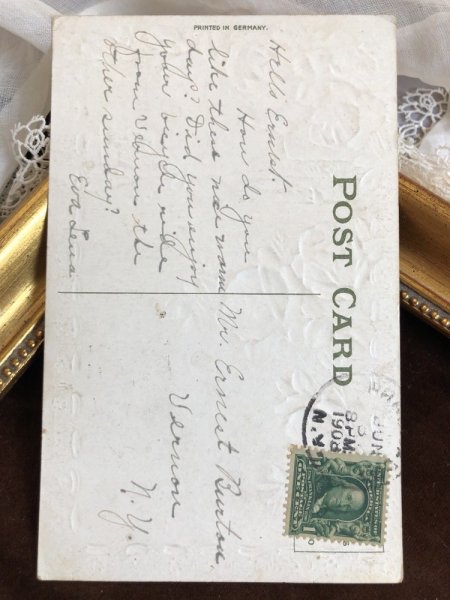 PRINTED IN GERMANY.
POST CARD
Hello Ernest.
How do you
like these nice warm
days? Did you enjoy
your bicycle ride
from Vernon the
other sunday?
Eva Lena
Mr. Ernest Burton
Vernon
N. Y.
JUN
3
8 PM
1908
N.Y.